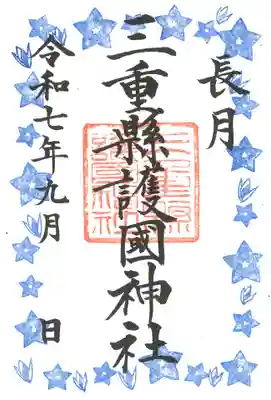 長月
三重縣護國神社
令和七年九月 日